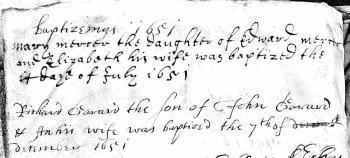 Baptizemgs 1651
mary mercer the daughter of Edward mercer
and Elizabeth his wife was baptized the
4 daye of July 1651
Richard Garard the son of John Garard
& Ann wife was baptized the 7th of
desember 1651